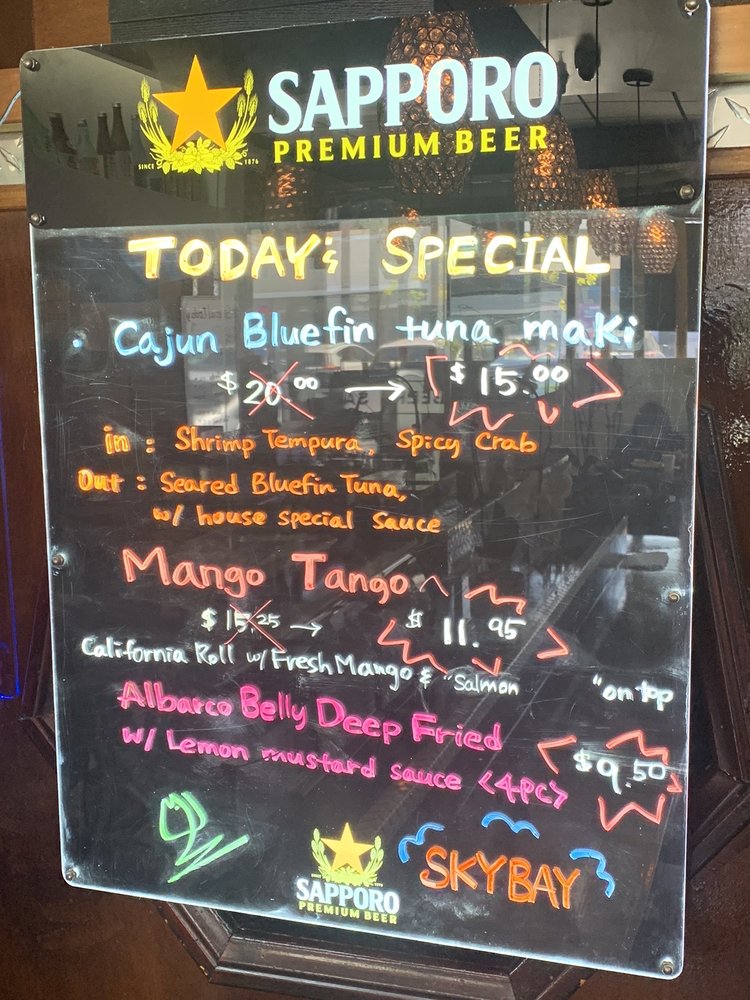 SAPPORO
PREMIUM BEER
SINCE 1876
TODAY's SPECIAL
· Cajun Bluefin tuna maki
$20.00 → $15.00
in : Shrimp Tempura, Spicy Crab
Out : Seared Bluefin Tuna,
w/ house special sauce
Mango Tango
$15.25 → $11.95
California Roll w/ Fresh Mango & "Salmon "on top
Albarco Belly Deep Fried
w/ Lemon mustard sauce <4pc> $9.50
SAPPORO
PREMIUM BEER
SKYBAY